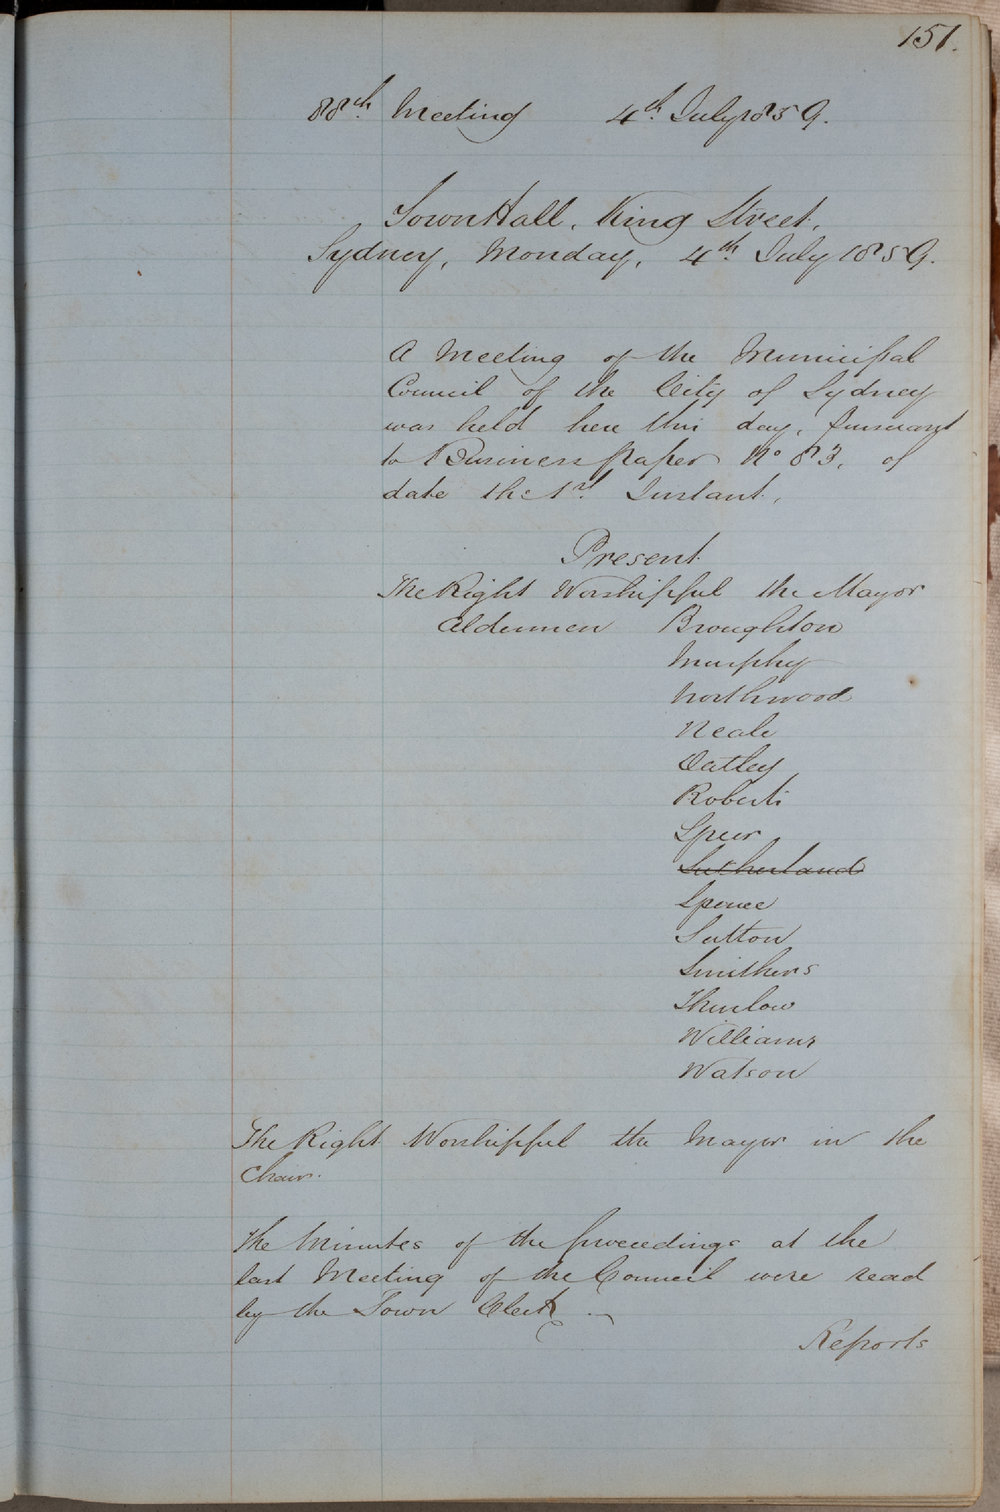 151.
88th. Meeting 4th. July 1859.
Town Hall, King Street,
Sydney, Monday, 4th. July 1859.
A Meeting of the Municipal
Council of the City of Sydney
was held here this day, pursuant
to Business paper No 83, of
date the 1st. Instant.
Present
The Right Worshipful the Mayor
Aldermen Broughton
Murphy
Northwood
Neale
Oatley
Roberts
Speer
Sutherland
Spence
Sutton
Smithers
Thurlow
Williams
Watson
The Right Worshipful the Mayor in the
Chair.
The Minutes of the proceedings at the
last Meeting of the Council were read
by the Town Clerk.
Reports